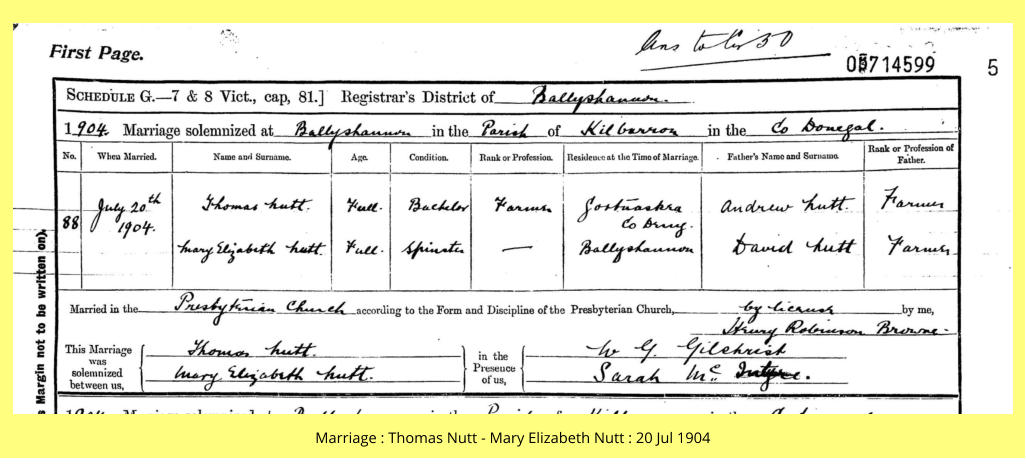 Ans to Cir 30
First Page.
05714599
5
SCHEDULE G.—7 & 8 Vict., cap, 81.] Registrar's District of Ballyshannon.
1904. Marriage solemnized at Ballyshannon in the Parish of Kilbarron in the Co Donegal.
No. When Married. Name and Surname. Age. Condition. Rank or Profession. Residence at the Time of Marriage. Father's Name and Surname. Rank or Profession of Father.
88 July 20th 1904. Thomas Nutt. Full. Bachelor Farmer Gortnaskea Co Derry. Andrew Nutt. Farmer
Mary Elizabeth Nutt. Full. Spinster — Ballyshannon David Nutt Farmer
Married in the Presbyterian Church according to the Form and Discipline of the Presbyterian Church, by license by me,
Henry Robinson Browne
This Marriage was solemnized between us,
Thomas Nutt.
Mary Elizabeth Nutt.
in the Presence of us,
W G Gilchrist
Sarah Mc Intyre.
s Margin not to be written on).
Marriage : Thomas Nutt - Mary Elizabeth Nutt : 20 Jul 1904